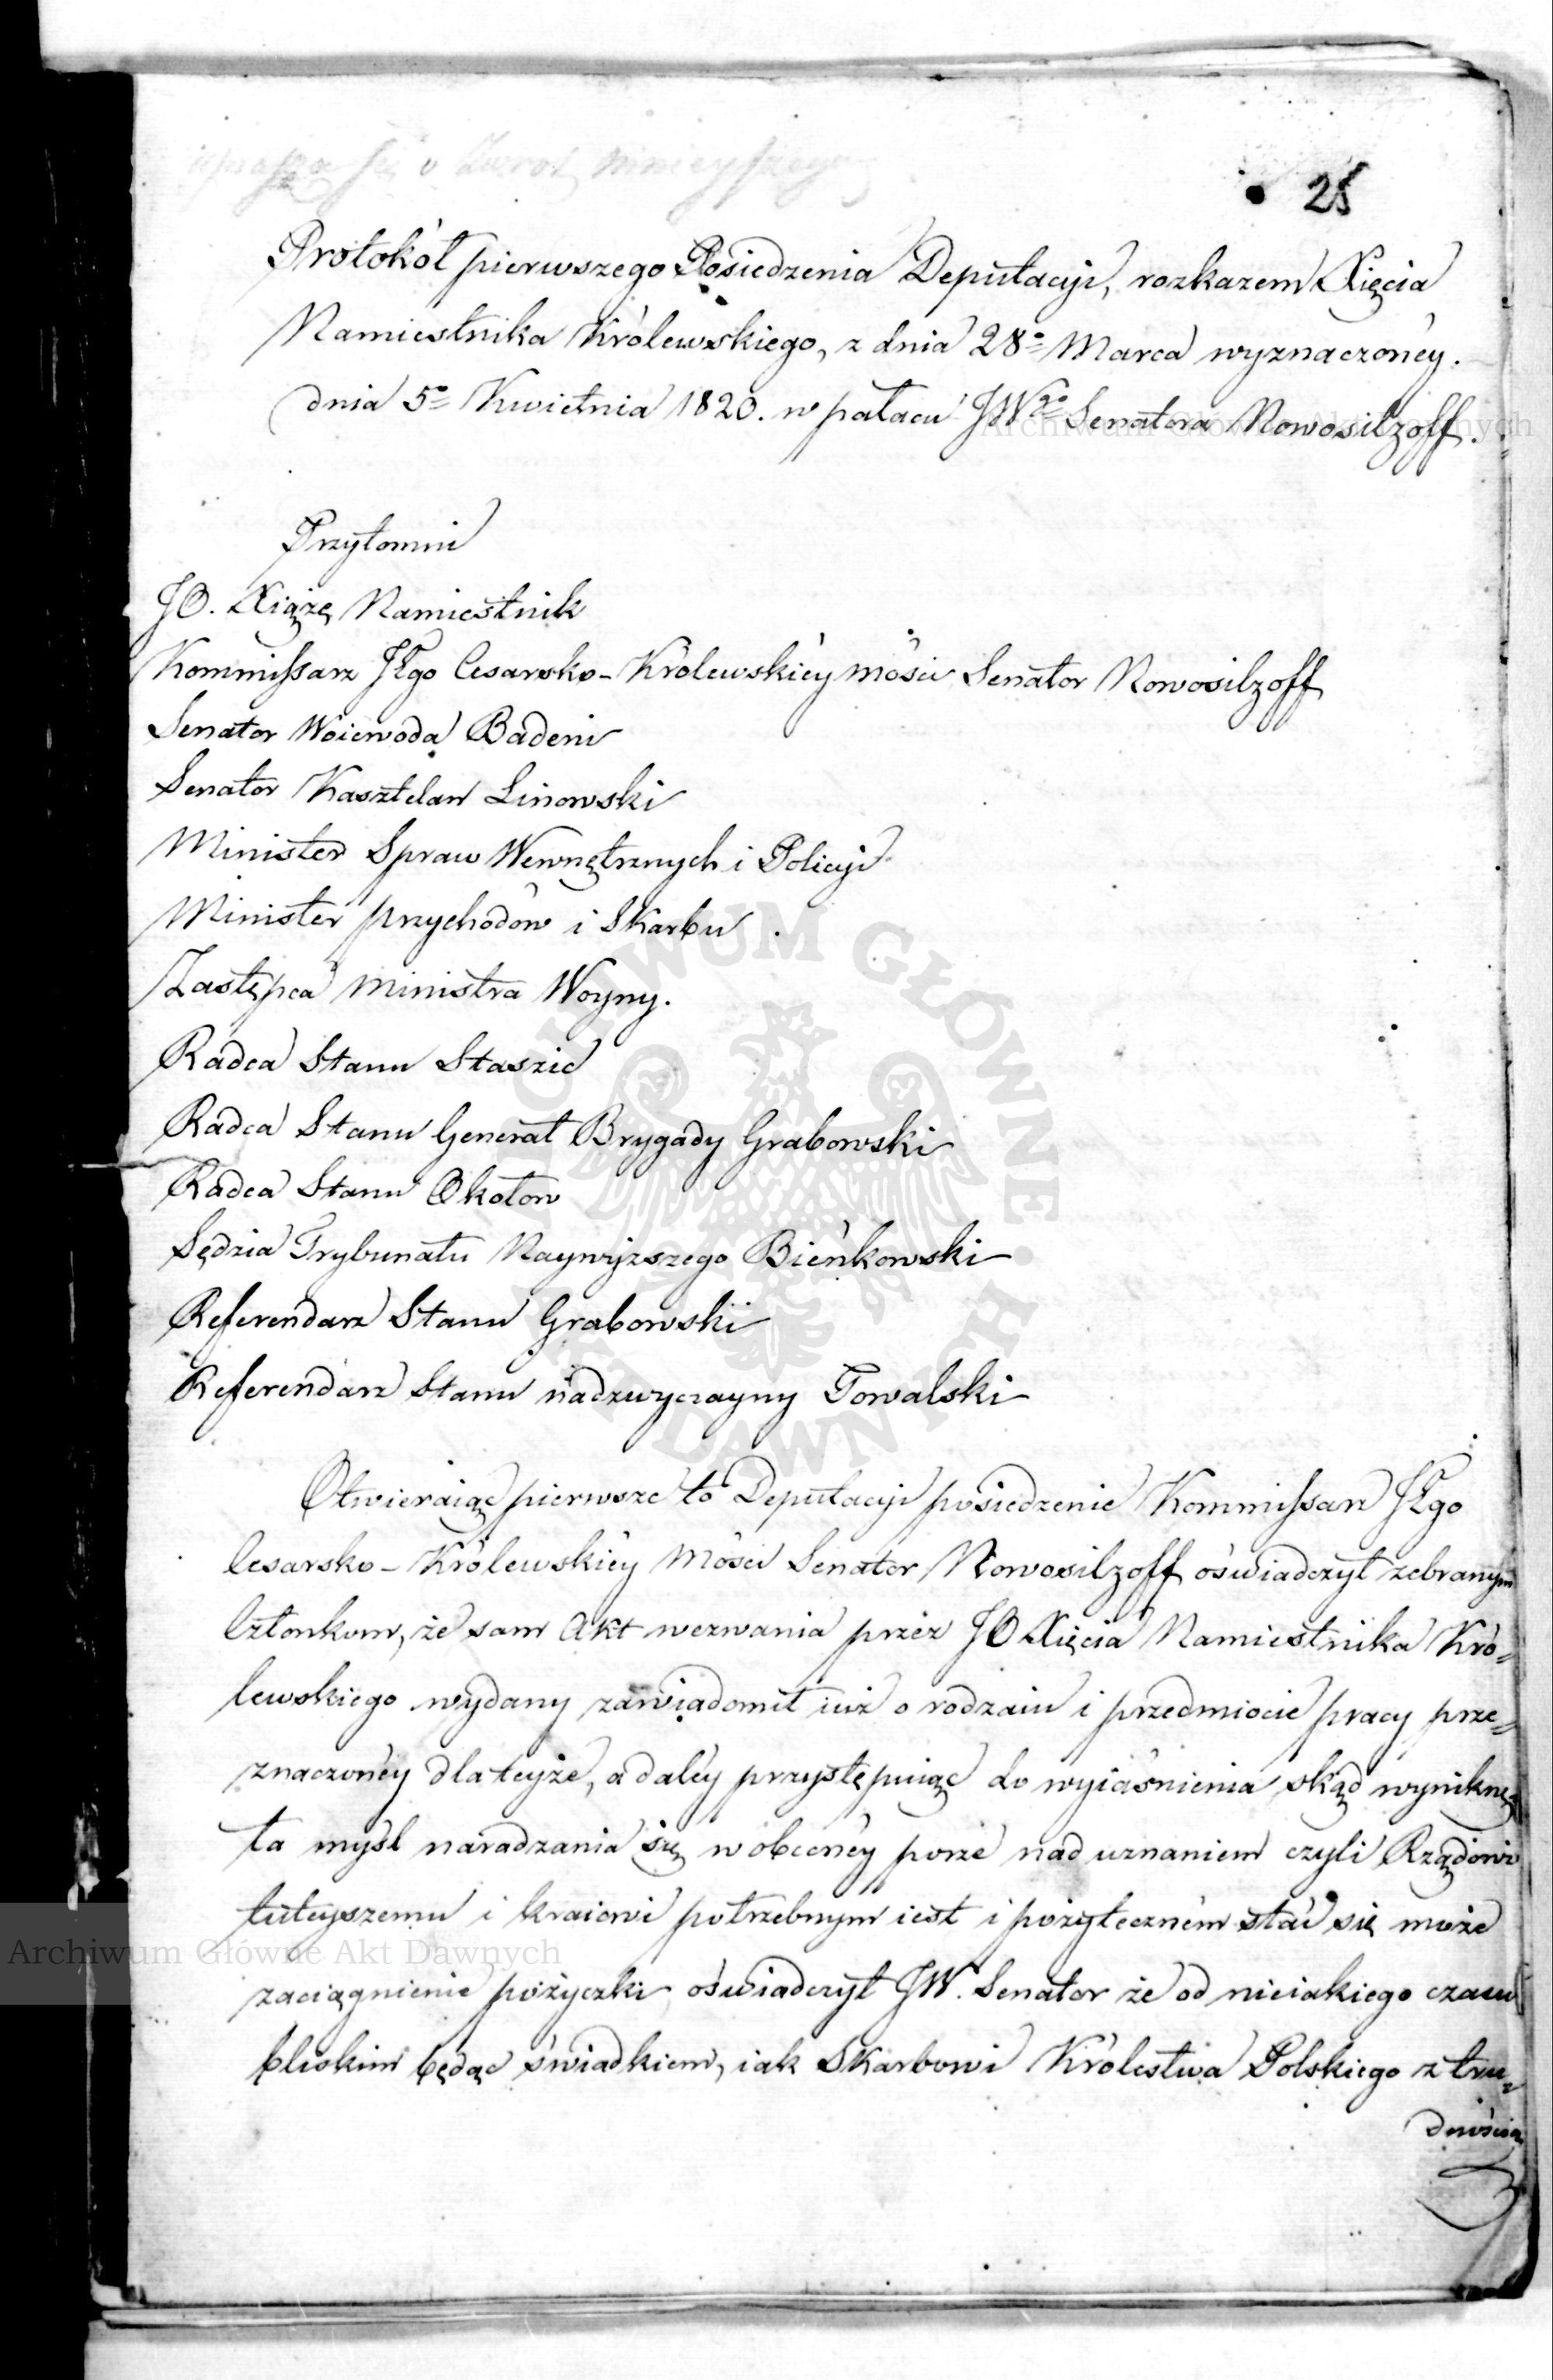 28
Protokół pierwszego Posiedzenia Deputacyi, rozkazem Xięcia
Namiestnika Królewskiego, z dnia 28º Marca wyznaczoney.
dnia 5º Kwietnia 1820. w pałacu JWgo Senatora Nowosilzoff.
Przytomni
JO. Xiążę Namiestnik
Kommissarz JEgo Cesarsko-Królewskiéy Mości Senator Nowosilzoff
Senator Woiewoda Badeni
Senator Kasztelan Linowski
Minister Spraw Wewnętrznych i Policyi
Minister przychodów i Skarbu.
Zastępca Ministra Woyny.
Radca Stanu Staszic
Radca Stanu Generał Brygady Grabowski
Radca Stanu Okołow
Sędzia Trybunału Naywyższego Bieńkowski
Referendarz Stanu Grabowski
Referendarz Stanu nadzwyczayny Towalski
Otwieraiąc pierwsze to Deputacyi posiedzenie Kommissarz JEgo
Cesarsko-Królewskiéy Mości Senator Nowosilzoff oświadczył zebranym
Członkom, że sam Akt wezwania przez JO Xięcia Namiestnika Kró-
lewskiego wydany zawiadomił iuż o rodzaiu i przedmiocie pracy prze-
znaczonéy dla teyże, a daléy przystępuiąc do wyiaśnienia skąd wyniknę
ta myśl naradzania się w obecnéy porze nad uznaniem czyli Rządowi
tuteyszemu i kraiowi potrzebnym iest i pożyteczném stać się może
zaciągnienie pożyczki oświadczył JW. Senator że od nieiakiego czasu
bliskim będąc świadkiem, iak Skarbowi Królestwa Polskiego z tru-
dnością
Archiwum Główne Akt Dawnych
Archiwum Główne Akt Dawnych
ARCHIWUM GŁÓWNE AKT DAWNYCH